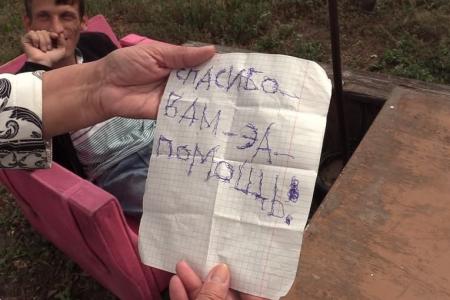 СПАСИБО_
ВАМ_ЗА_
ПОМОЩЬ!